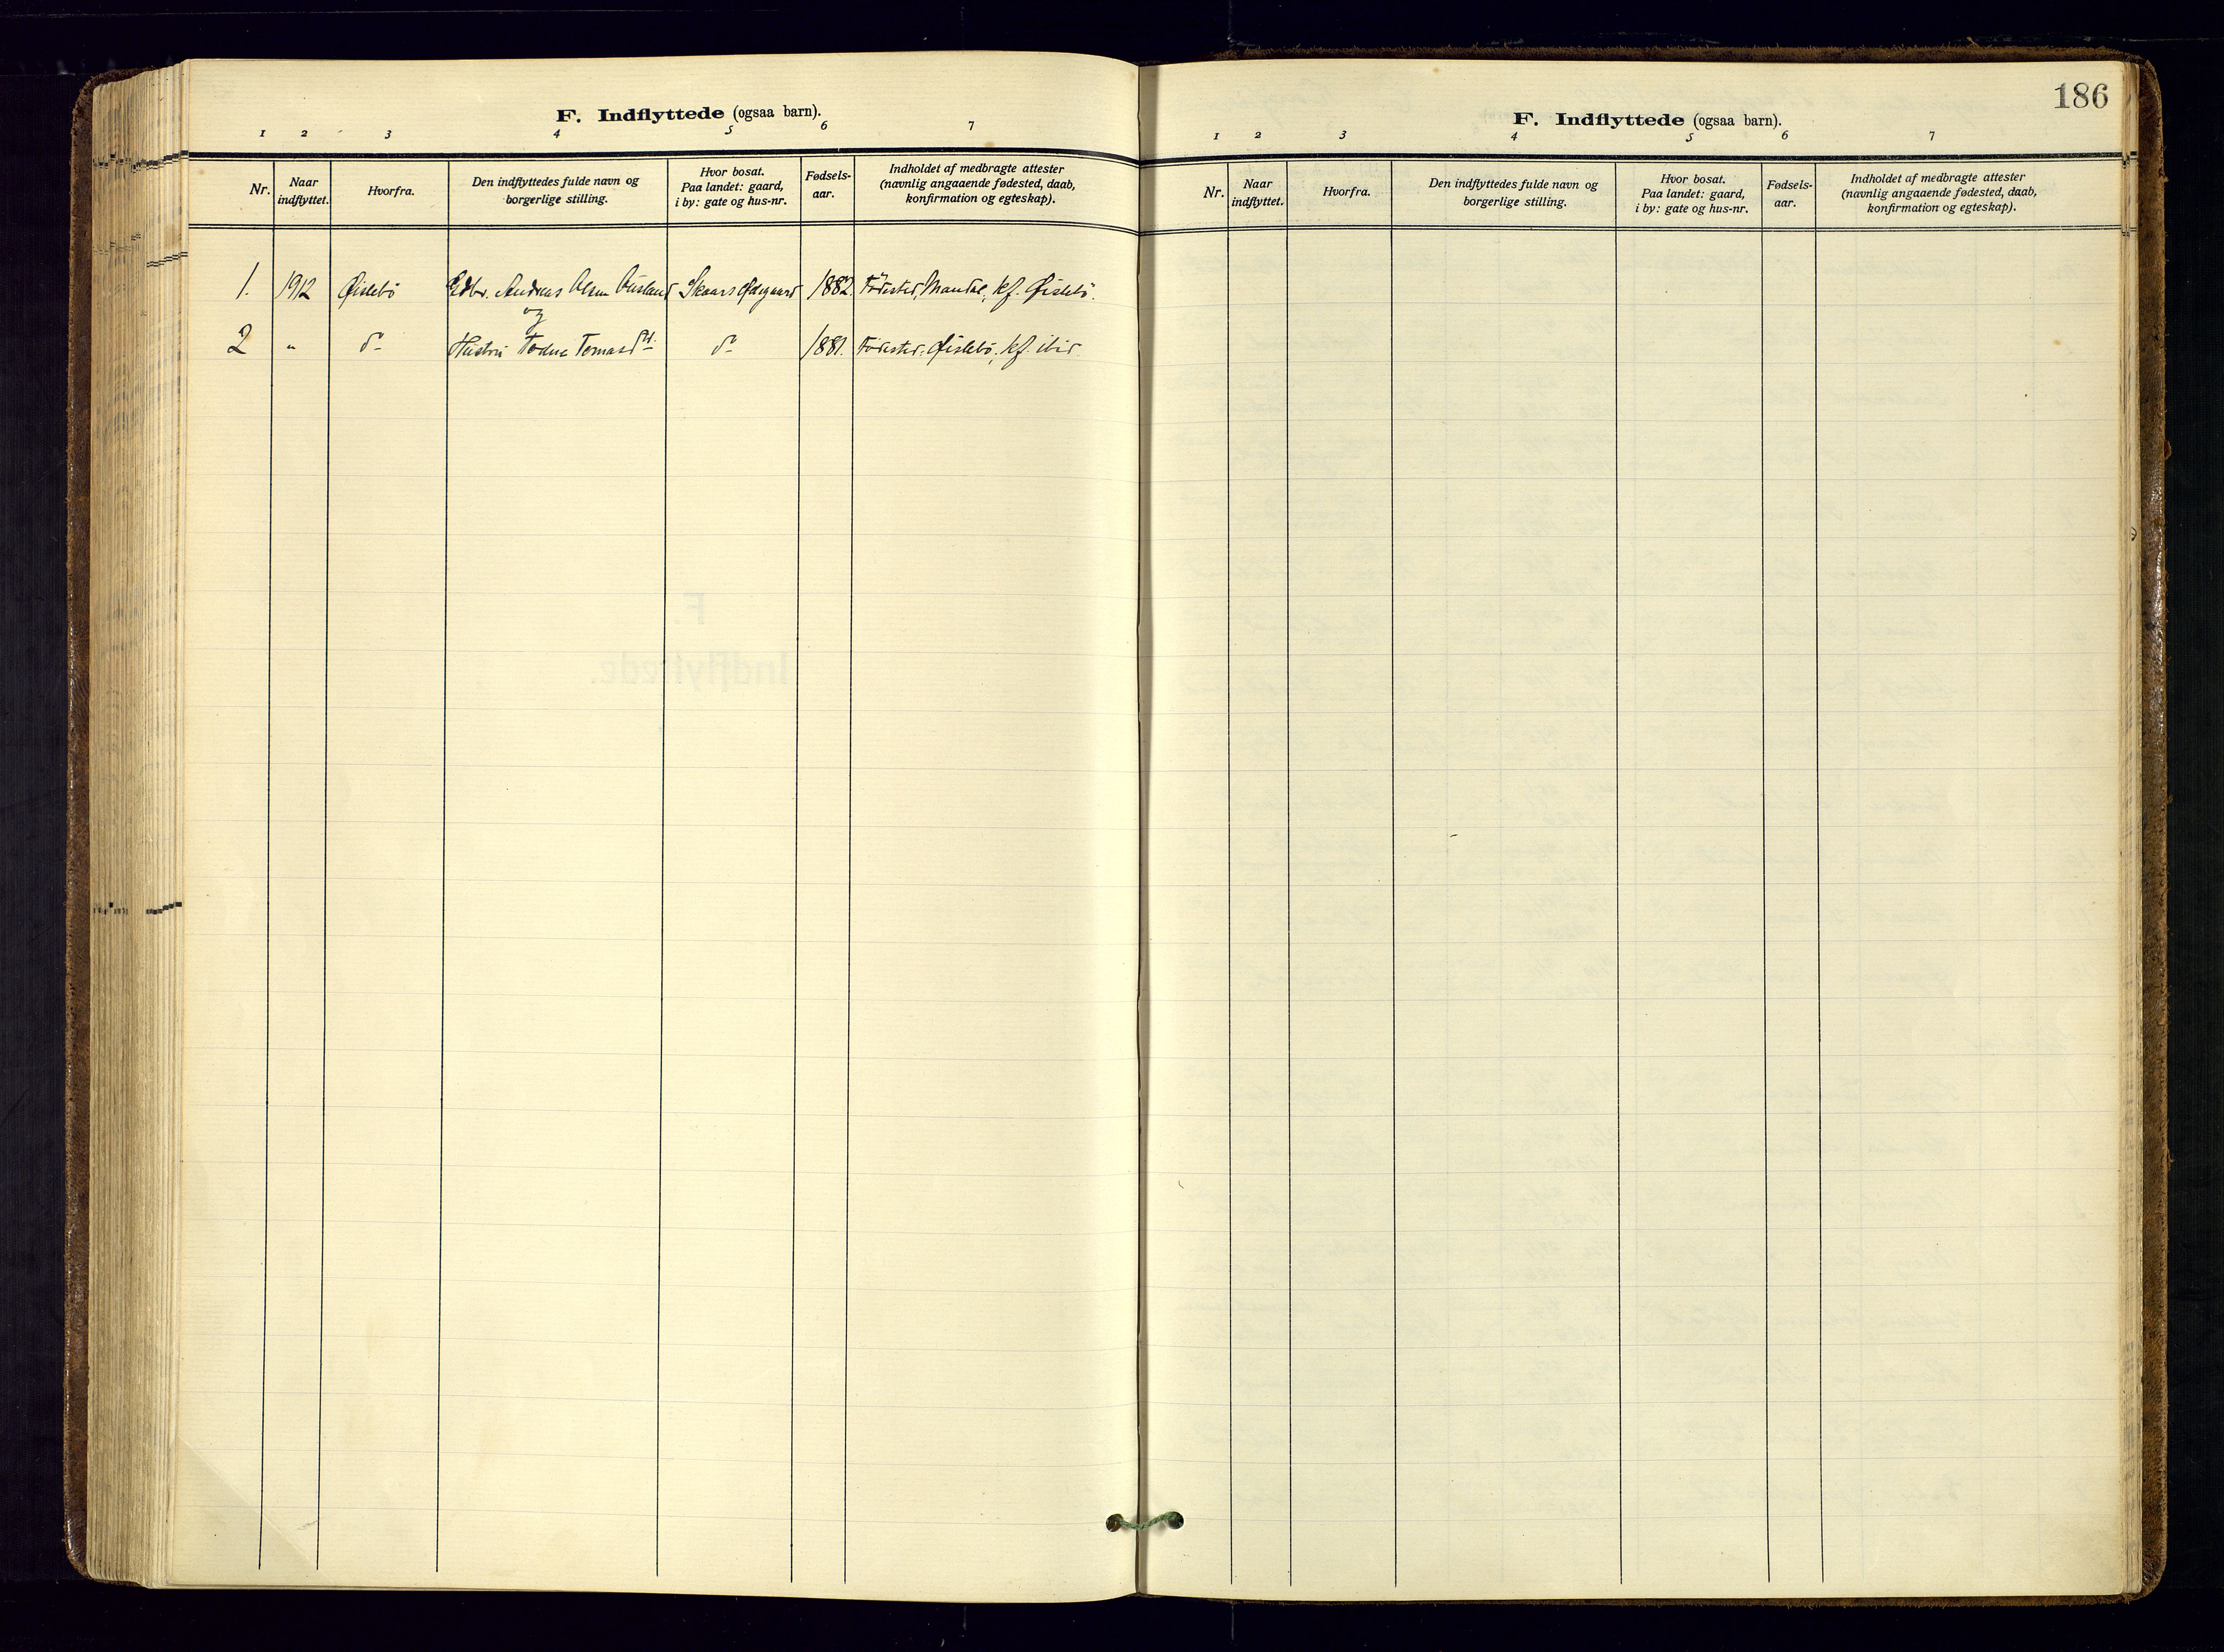 F. Indflyttede (ogsaa barn).
1 2 3 4 5 6 7
Nr. Naar indflyttet. Hvorfra. Den indflyttedes fulde navn og borgerlige stilling. Hvor bosat. Paa landet: gaard, i by: gate og hus-nr. Fødsels-aar. Indholdet af medbragte attester (navnlig angaaende fødested, daab, konfirmation og egteskap).
1. 1912 Øislebö Gdbr. Andreas Olsen Ausland Skaars Ødegaard 1882. Födested, Mandal, kf. Øislebö.
og
2 " do Hustru Todne Tomasdt. do 1881. Födested: Øislebö, kf. ibid.
186
F. Indflyttede (ogsaa barn).
1 2 3 4 5 6 7
Nr. Naar indflyttet. Hvorfra. Den indflyttedes fulde navn og borgerlige stilling. Hvor bosat. Paa landet: gaard, i by: gate og hus-nr. Fødsels-aar. Indholdet af medbragte attester (navnlig angaaende fødested, daab, konfirmation og egteskap).
F.
Indflyttede.